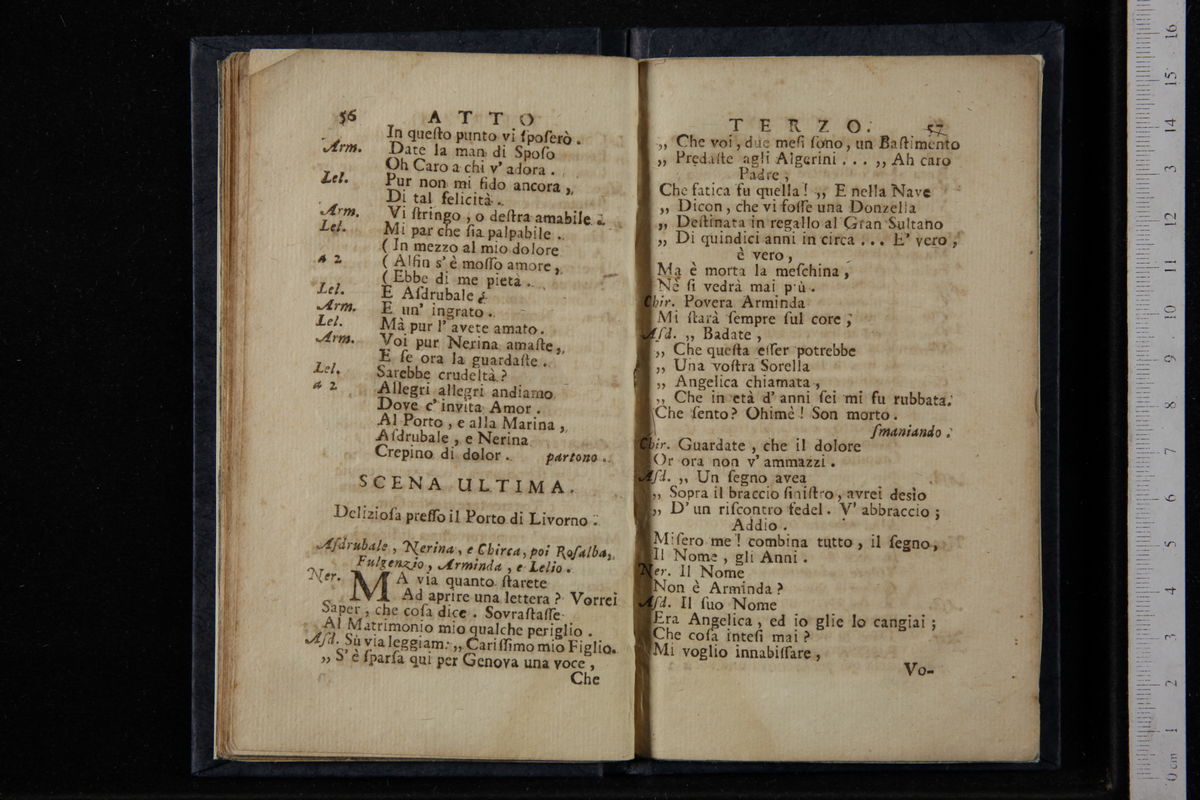 56 ATTO
In queſto punto vi ſpoſerò.
Arm. Date la man di Spoſo
Oh Caro a chi v' adora.
Lel. Pur non mi fido ancora,
Di tal felicità.
Arm. Vi ſtringo, o deſtra amabile.
Lel. Mi par che ſia palpabile.
( In mezzo al mio dolore
a 2 ( Alfin s' è moſſo amore,
( Ebbe di me pietà.
Lel. E Aſdrubale?
Arm. E un' ingrato.
Lel. Mà pur l' avete amato.
Arm. Voi pur Nerina amaſte,
E ſe ora la guardaſte.
Lel. Sarebbe crudeltà?
a 2 Allegri allegri andiamo
Dove c' invita Amor.
Al Porto, e alla Marina,
Aſdrubale, e Nerina
Crepino di dolor. partono.
SCENA ULTIMA.
Delizioſa preſſo il Porto di Livorno.
Aſdrubale, Nerina, e Chirca, poi Roſalba,
Fulgenzio, Arminda, e Lelio.
Ner. MA via quanto ſtarete
Ad aprire una lettera? Vorrei
Saper, che coſa dice. Sovraſtaſſe
Al Matrimonio mio qualche periglio.
Aſd. Sù via leggiam. „ Cariſſimo mio Figlio.
„ S' è ſparſa qui per Genova una voce,
Che
TERZO. 57
„ Che voi, due meſi ſono, un Baſtimento
„ Predaſte agli Algerini... „ Ah caro
Padre,
Che fatica fu quella! „ E nella Nave
„ Dicon, che vi foſſe una Donzella
„ Deſtinata in regallo al Gran Sultano
„ Di quindici anni in circa... E' vero,
è vero,
Ma è morta la meſchina,
Nè ſi vedrà mai più.
Chir. Povera Arminda
Mi ſtarà ſempre ſul core;
Aſd. „ Badate,
„ Che queſta eſſer potrebbe
„ Una voſtra Sorella
„ Angelica chiamata,
„ Che in età d' anni ſei mi fu rubbata.
Che ſento? Ohimè! Son morto.
ſmaniando.
Chir. Guardate, che il dolore
Or ora non v' ammazzi.
Aſd. „ Un ſegno avea
„ Sopra il braccio ſiniſtro, avrei desìo
„ D' un riſcontro fedel. V' abbraccio;
Addio.
Miſero me! combina tutto, il ſegno,
Il Nome, gli Anni.
Ner. Il Nome
Non è Arminda?
Aſd. Il ſuo Nome
Era Angelica, ed io glie lo cangiai;
Che coſa inteſi mai?
Mi voglio innabiſſare,
Vo-
0 cm 1 2 3 4 5 6 7 8 9 10 11 12 13 14 15 16